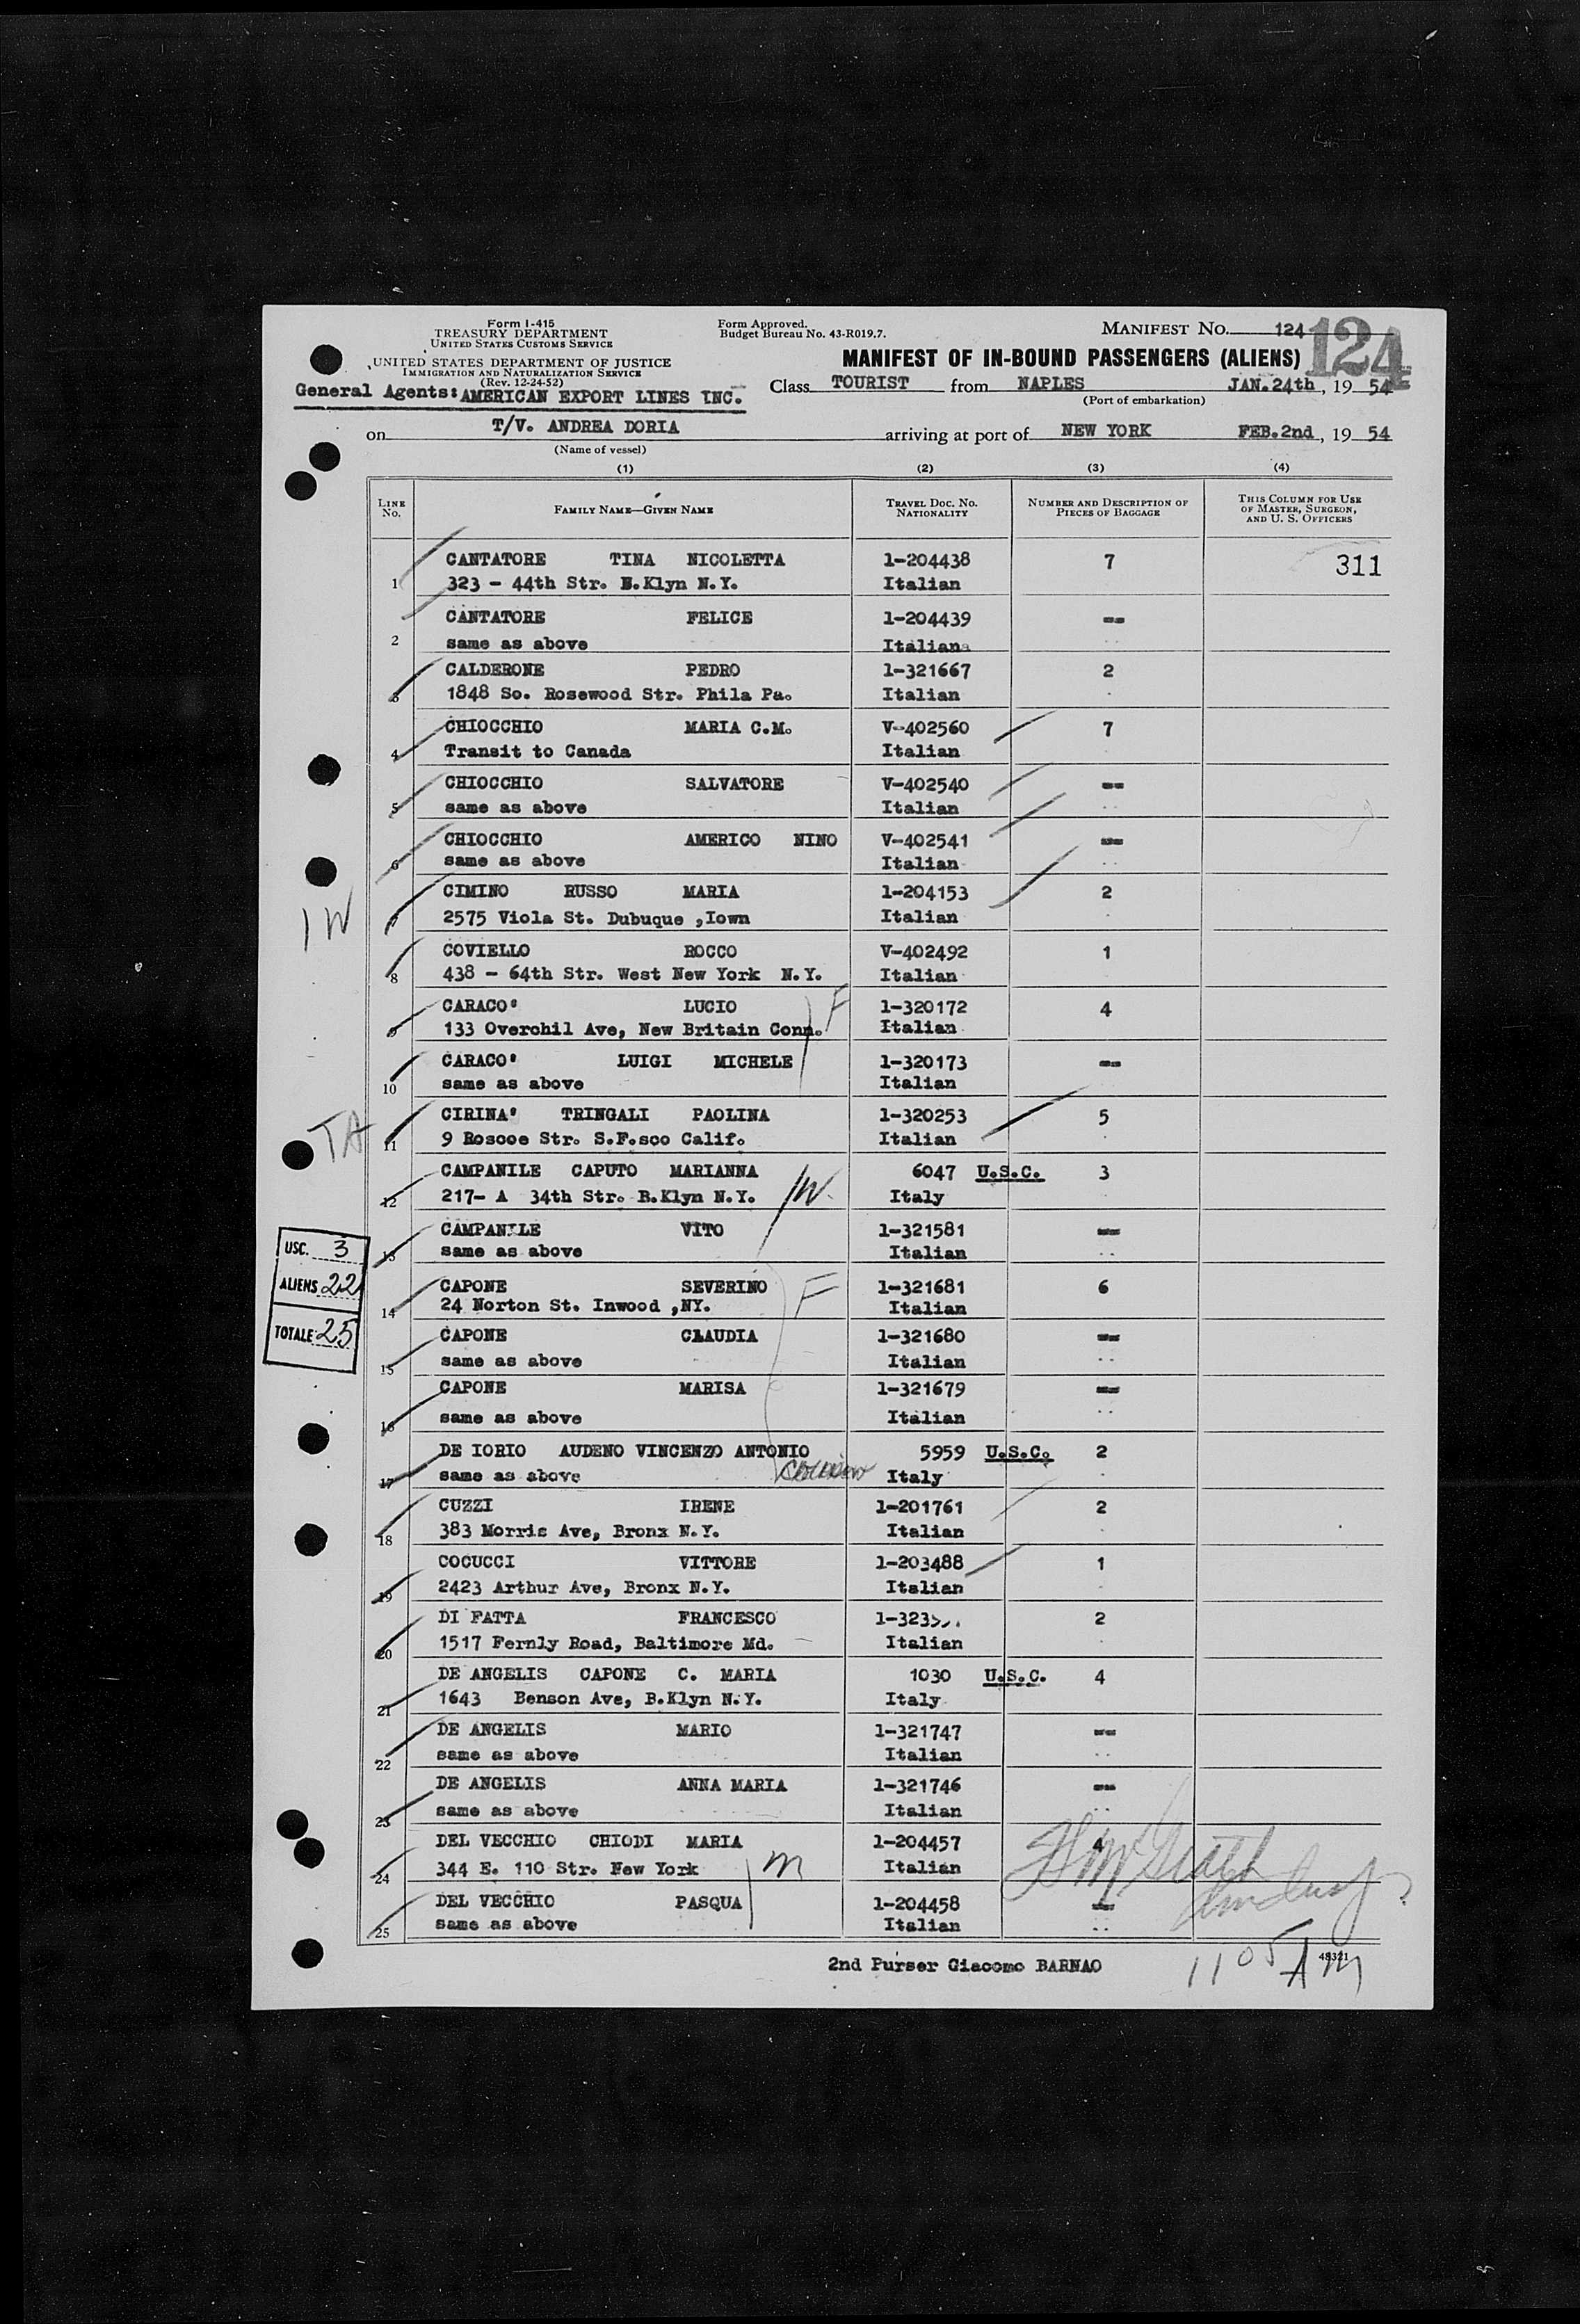 Form I-415
TREASURY DEPARTMENT
UNITED STATES CUSTOMS SERVICE
UNITED STATES DEPARTMENT OF JUSTICE
IMMIGRATION AND NATURALIZATION SERVICE
(Rev. 12-24-52)
General Agents: AMERICAN EXPORT LINES INC.
Form Approved.
Budget Bureau No. 43-R019.7.
MANIFEST No. 124
124
MANIFEST OF IN-BOUND PASSENGERS (ALIENS)
Class TOURIST from NAPLES JAN. 24th, 19 54
(Port of embarkation)
on T/V. ANDREA DORIA arriving at port of NEW YORK FEB. 2nd, 19 54
(Name of vessel)
(1) (2) (3) (4)
LINE No. FAMILY NAME—GIVEN NAME TRAVEL DOC. No. NATIONALITY NUMBER AND DESCRIPTION OF PIECES OF BAGGAGE THIS COLUMN FOR USE OF MASTER, SURGEON, AND U. S. OFFICERS
CANTATORE TINA NICOLETTA 1-204438 7 311
1 323 - 44th Str. B.Klyn N.Y. Italian
CANTATORE FELICE 1-204439 --
2 same as above Italian
CALDERONE PEDRO 1-321667 2
3 1848 So. Rosewood Str. Phila Pa. Italian
CHIOCCHIO MARIA C.M. V-402560 7
4 Transit to Canada Italian
CHIOCCHIO SALVATORE V-402540 --
5 same as above Italian
CHIOCCHIO AMERICO NINO V-402541 --
6 same as above Italian
CIMINO RUSSO MARIA 1-204153 2
7 2575 Viola St. Dubuque ,Iown Italian
1 W
COVIELLO ROCCO V-402492 1
8 438 - 64th Str. West New York N.Y. Italian
CARACO' LUCIO F 1-320172 4
9 133 Overchil Ave, New Britain Conn. Italian
CARACO' LUIGI MICHELE 1-320173 --
10 same as above Italian
CIRINA' TRINGALI PAOLINA 1-320253 5
TA
11 9 Roscoe Str. S.F.sco Calif. Italian
CAMPANILE CAPUTO MARIANNA 6047 U.S.C. 3
12 217- A 34th Str. B.Klyn N.Y. Italy
CAMPANILE VITO 1-321581 --
13 same as above Italian
USC. 3
ALIENS 22
TOTALE 25
CAPONE SEVERINO F 1-321681 6
14 24 Norton St. Inwood ,NY. Italian
CAPONE CLAUDIA 1-321680 --
15 same as above Italian
CAPONE MARISA 1-321679 --
16 same as above Italian
DE IORIO AUDENO VINCENZO ANTONIO 5959 U.S.C. 2
17 same as above Italy
CUZZI IRENE 1-201761 2
18 383 Morris Ave, Bronx N.Y. Italian
COCUCCI VITTORE 1-203488 1
19 2423 Arthur Ave, Bronx N.Y. Italian
DI FATTA FRANCESCO 2
20 1517 Fernly Road, Baltimore Md. Italian
DE ANGELIS CAPONE C. MARIA 1030 U.S.C. 4
21 1643 Benson Ave, B.Klyn N.Y. Italy
DE ANGELIS MARIO 1-321747 --
22 same as above Italian
DE ANGELIS ANNA MARIA 1-321746 --
23 same as above Italian
DEL VECCHIO CHIODI MARIA 1-204457 4
24 344 E. 110 Str. New York m Italian
DEL VECCHIO PASQUA 1-204458 --
25 same as above Italian
2nd Purser Giacomo BARNAO
1105 AM